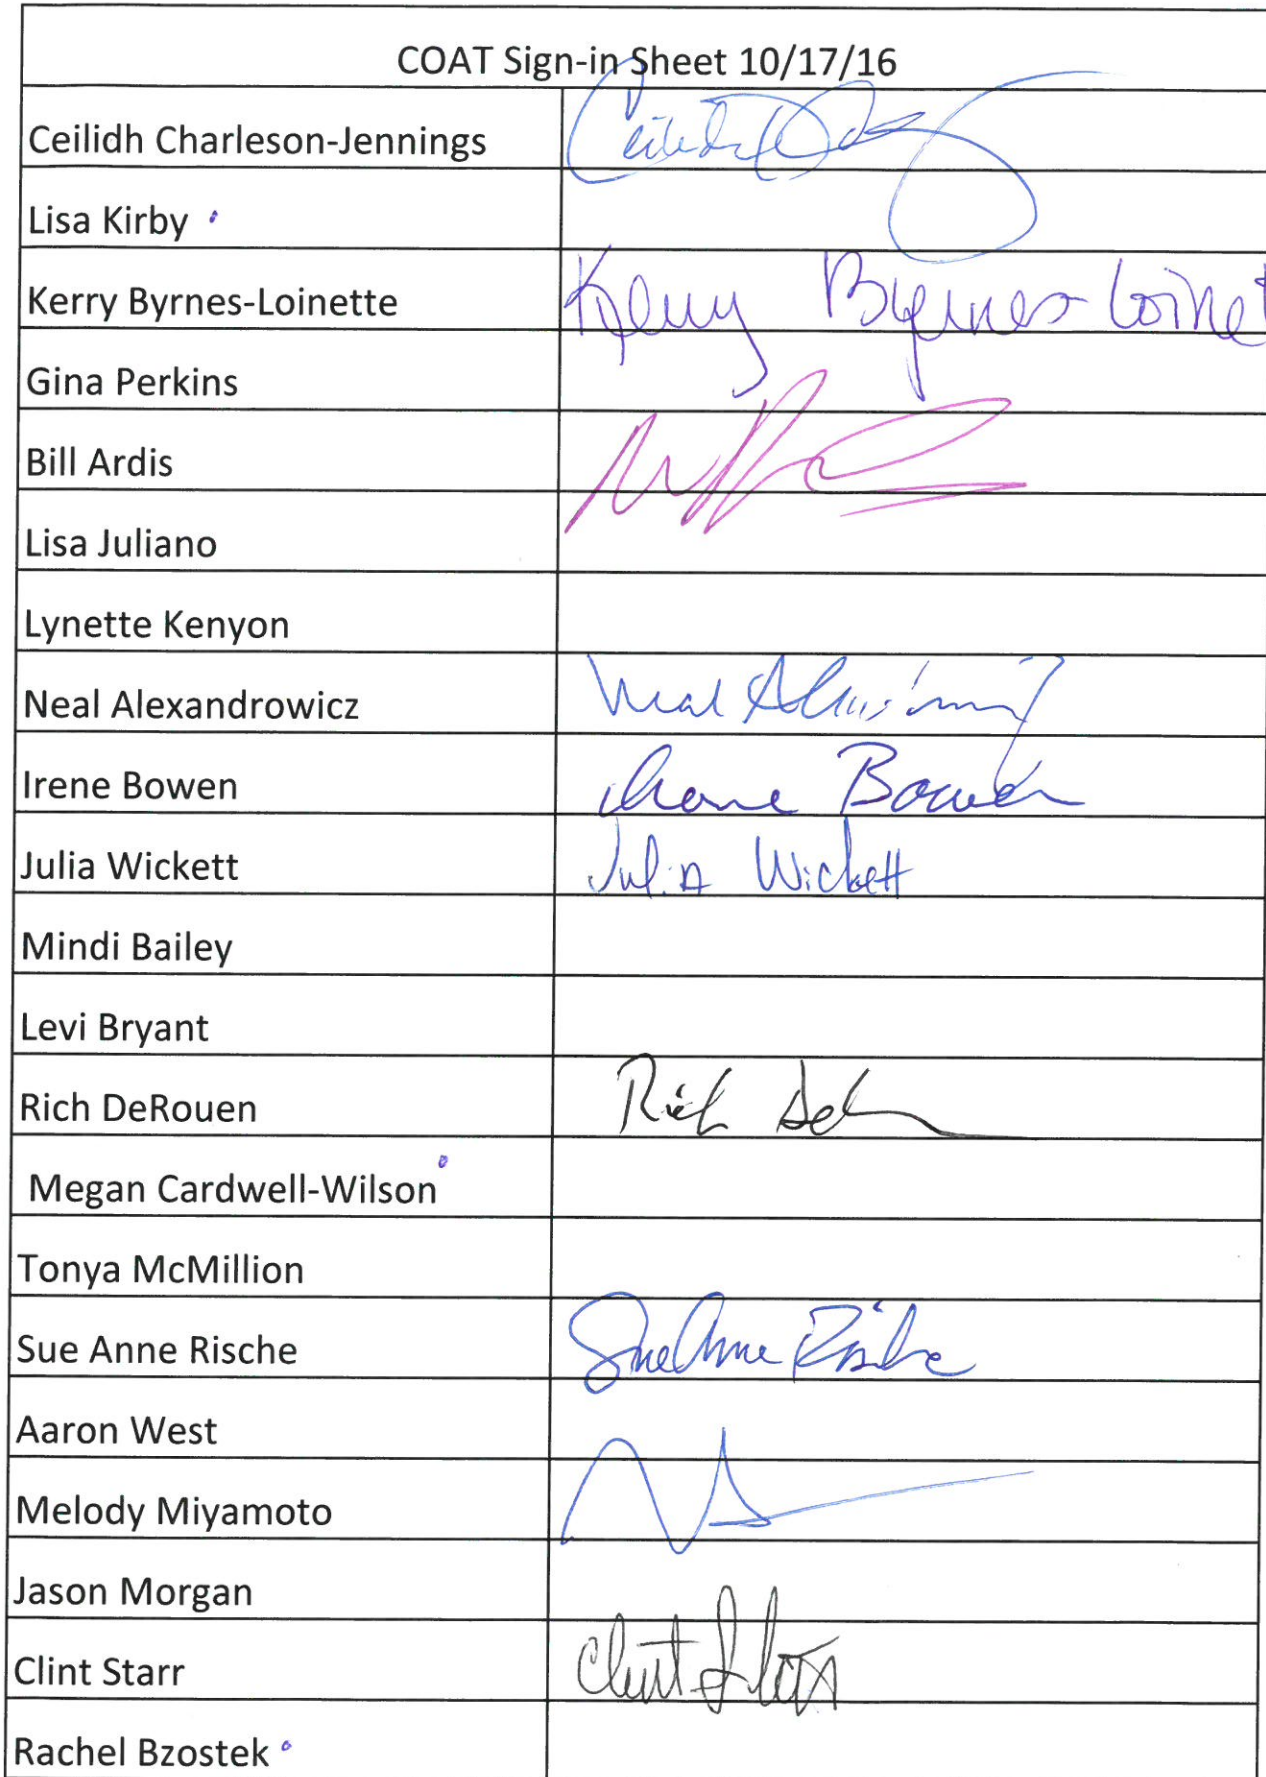 COAT Sign-in Sheet 10/17/16
Ceilidh Charleson-Jennings
Lisa Kirby
Kerry Byrnes-Loinette Kerry Byrnes-Loinet
Gina Perkins
Bill Ardis
Lisa Juliano
Lynette Kenyon
Neal Alexandrowicz Neal
Irene Bowen Irene Bowen
Julia Wickett Julia Wickett
Mindi Bailey
Levi Bryant
Rich DeRouen Rich
Megan Cardwell-Wilson
Tonya McMillion
Sue Anne Rische SueAnne Rische
Aaron West
Melody Miyamoto
Jason Morgan
Clint Starr Clint
Rachel Bzostek